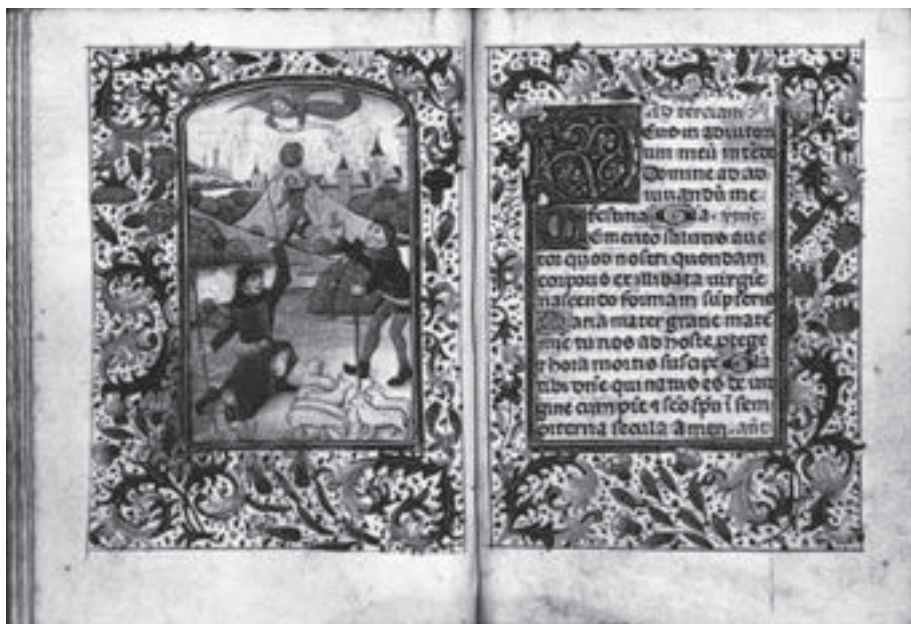 Ad terciam
Eus in adiutori
um meū intēde
Domine ad ad
iuuandū me
festina
Emento salutis auc
tor quod nostri quondam
corporis ex illibata virgīe
nascendo formam sūpseris
Maria mater gratie mater
nos ab hoste protege
hora mortis suscipe Gla
tibi dñe qui natus es de uir
gine cum pr̄e ⁊ sc̄o spū ī sem
piterna secula Amen. añ